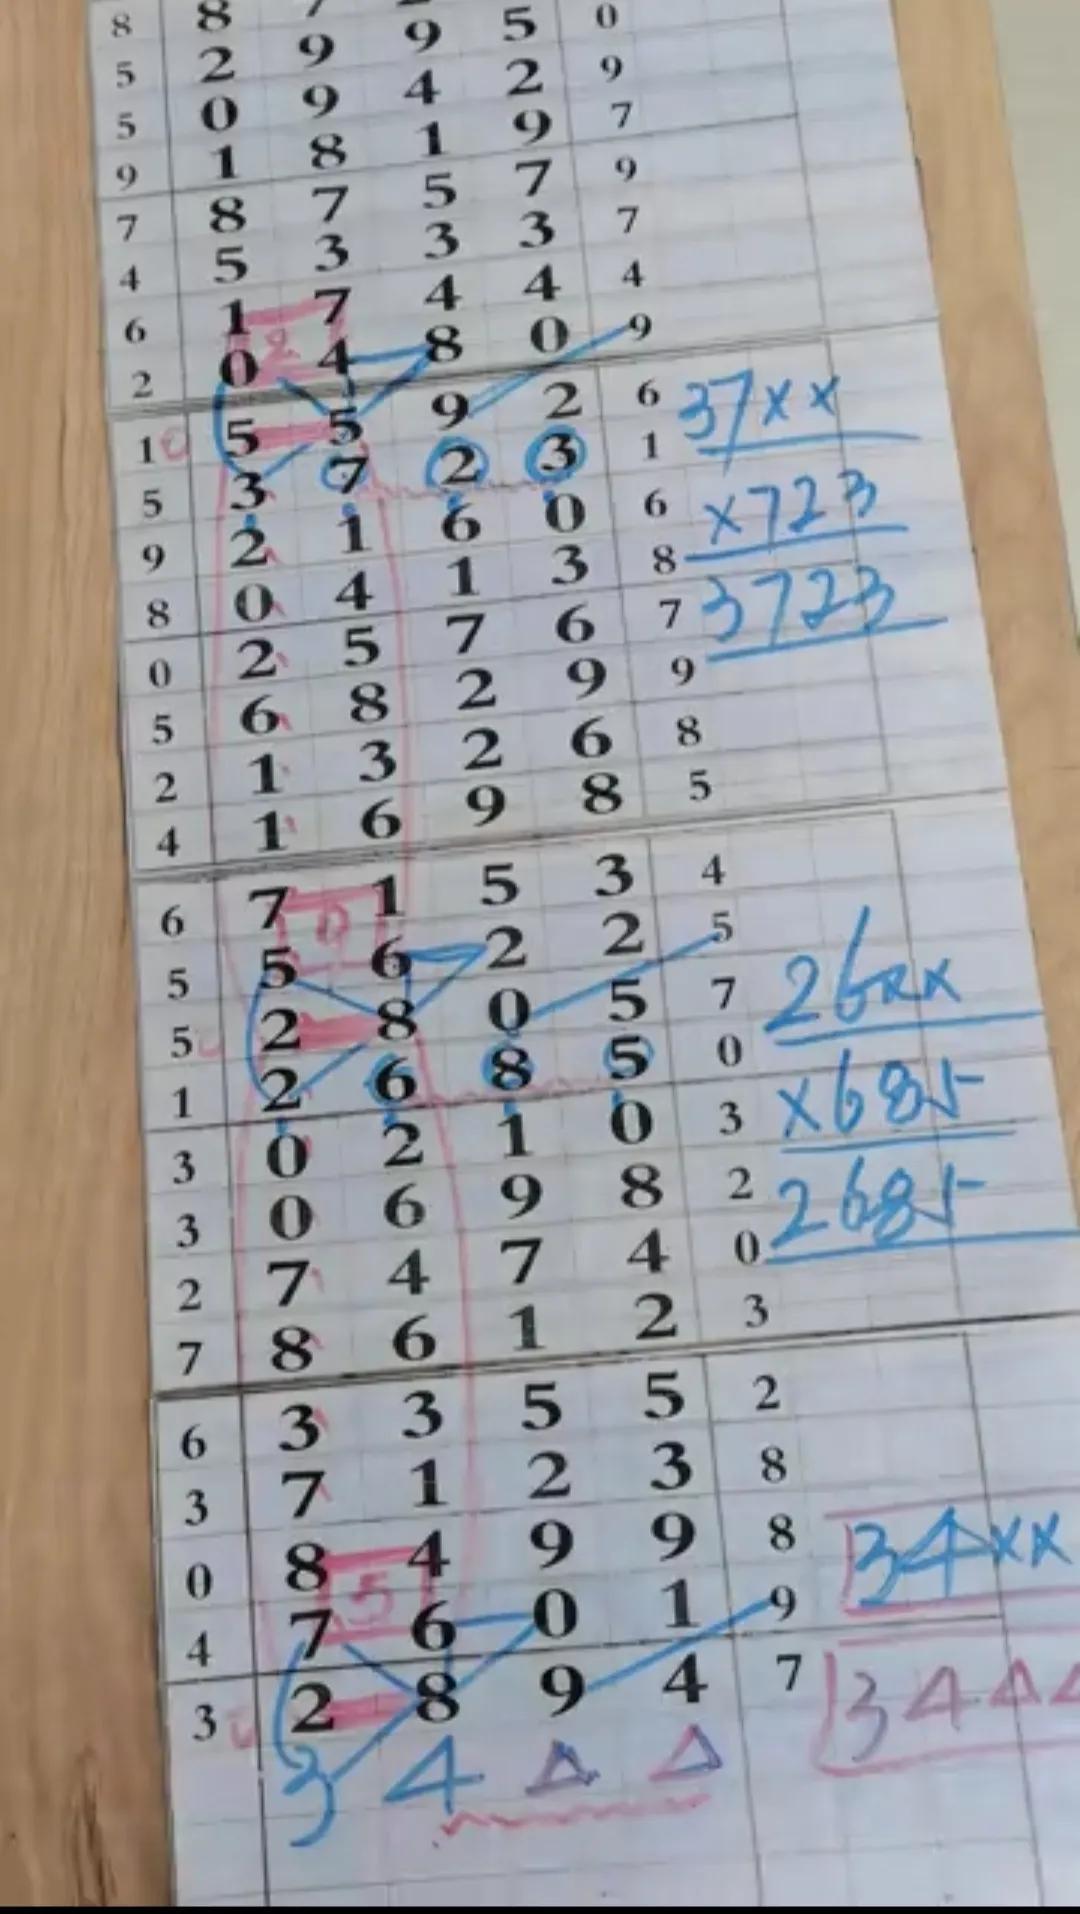 8 8 7 5 0
5 2 9 9 2 9
5 0 9 4 9 7
9 1 8 1 7 9
7 8 7 5 3 7
4 5 3 3 4 4
6 1 7 4 0 9
2 0 2 4 8
1 0 5 5 9 2 6 37xx
5 3 7 2 3 1
9 2 1 6 0 6 x723
8 0 4 1 3 8
0 2 5 7 6 7 3723
5 6 8 2 9 9
2 1 3 2 6 8
4 1 6 9 8 5
6 7 1 5 3 4
5 5 0 6 2 2 5
5 0 2 8 0 5 7 26xx
1 2 6 8 5 0
3 0 2 1 0 3 x685
3 0 6 9 8 2 2685
2 7 4 7 4 0
7 8 6 1 2 3
6 3 3 5 5 2
3 7 1 2 3 8
0 8 4 9 9 8 34xx
4 7 5 6 0 1 9
3 0 2 8 9 4 7 34△△
3 4 △ △